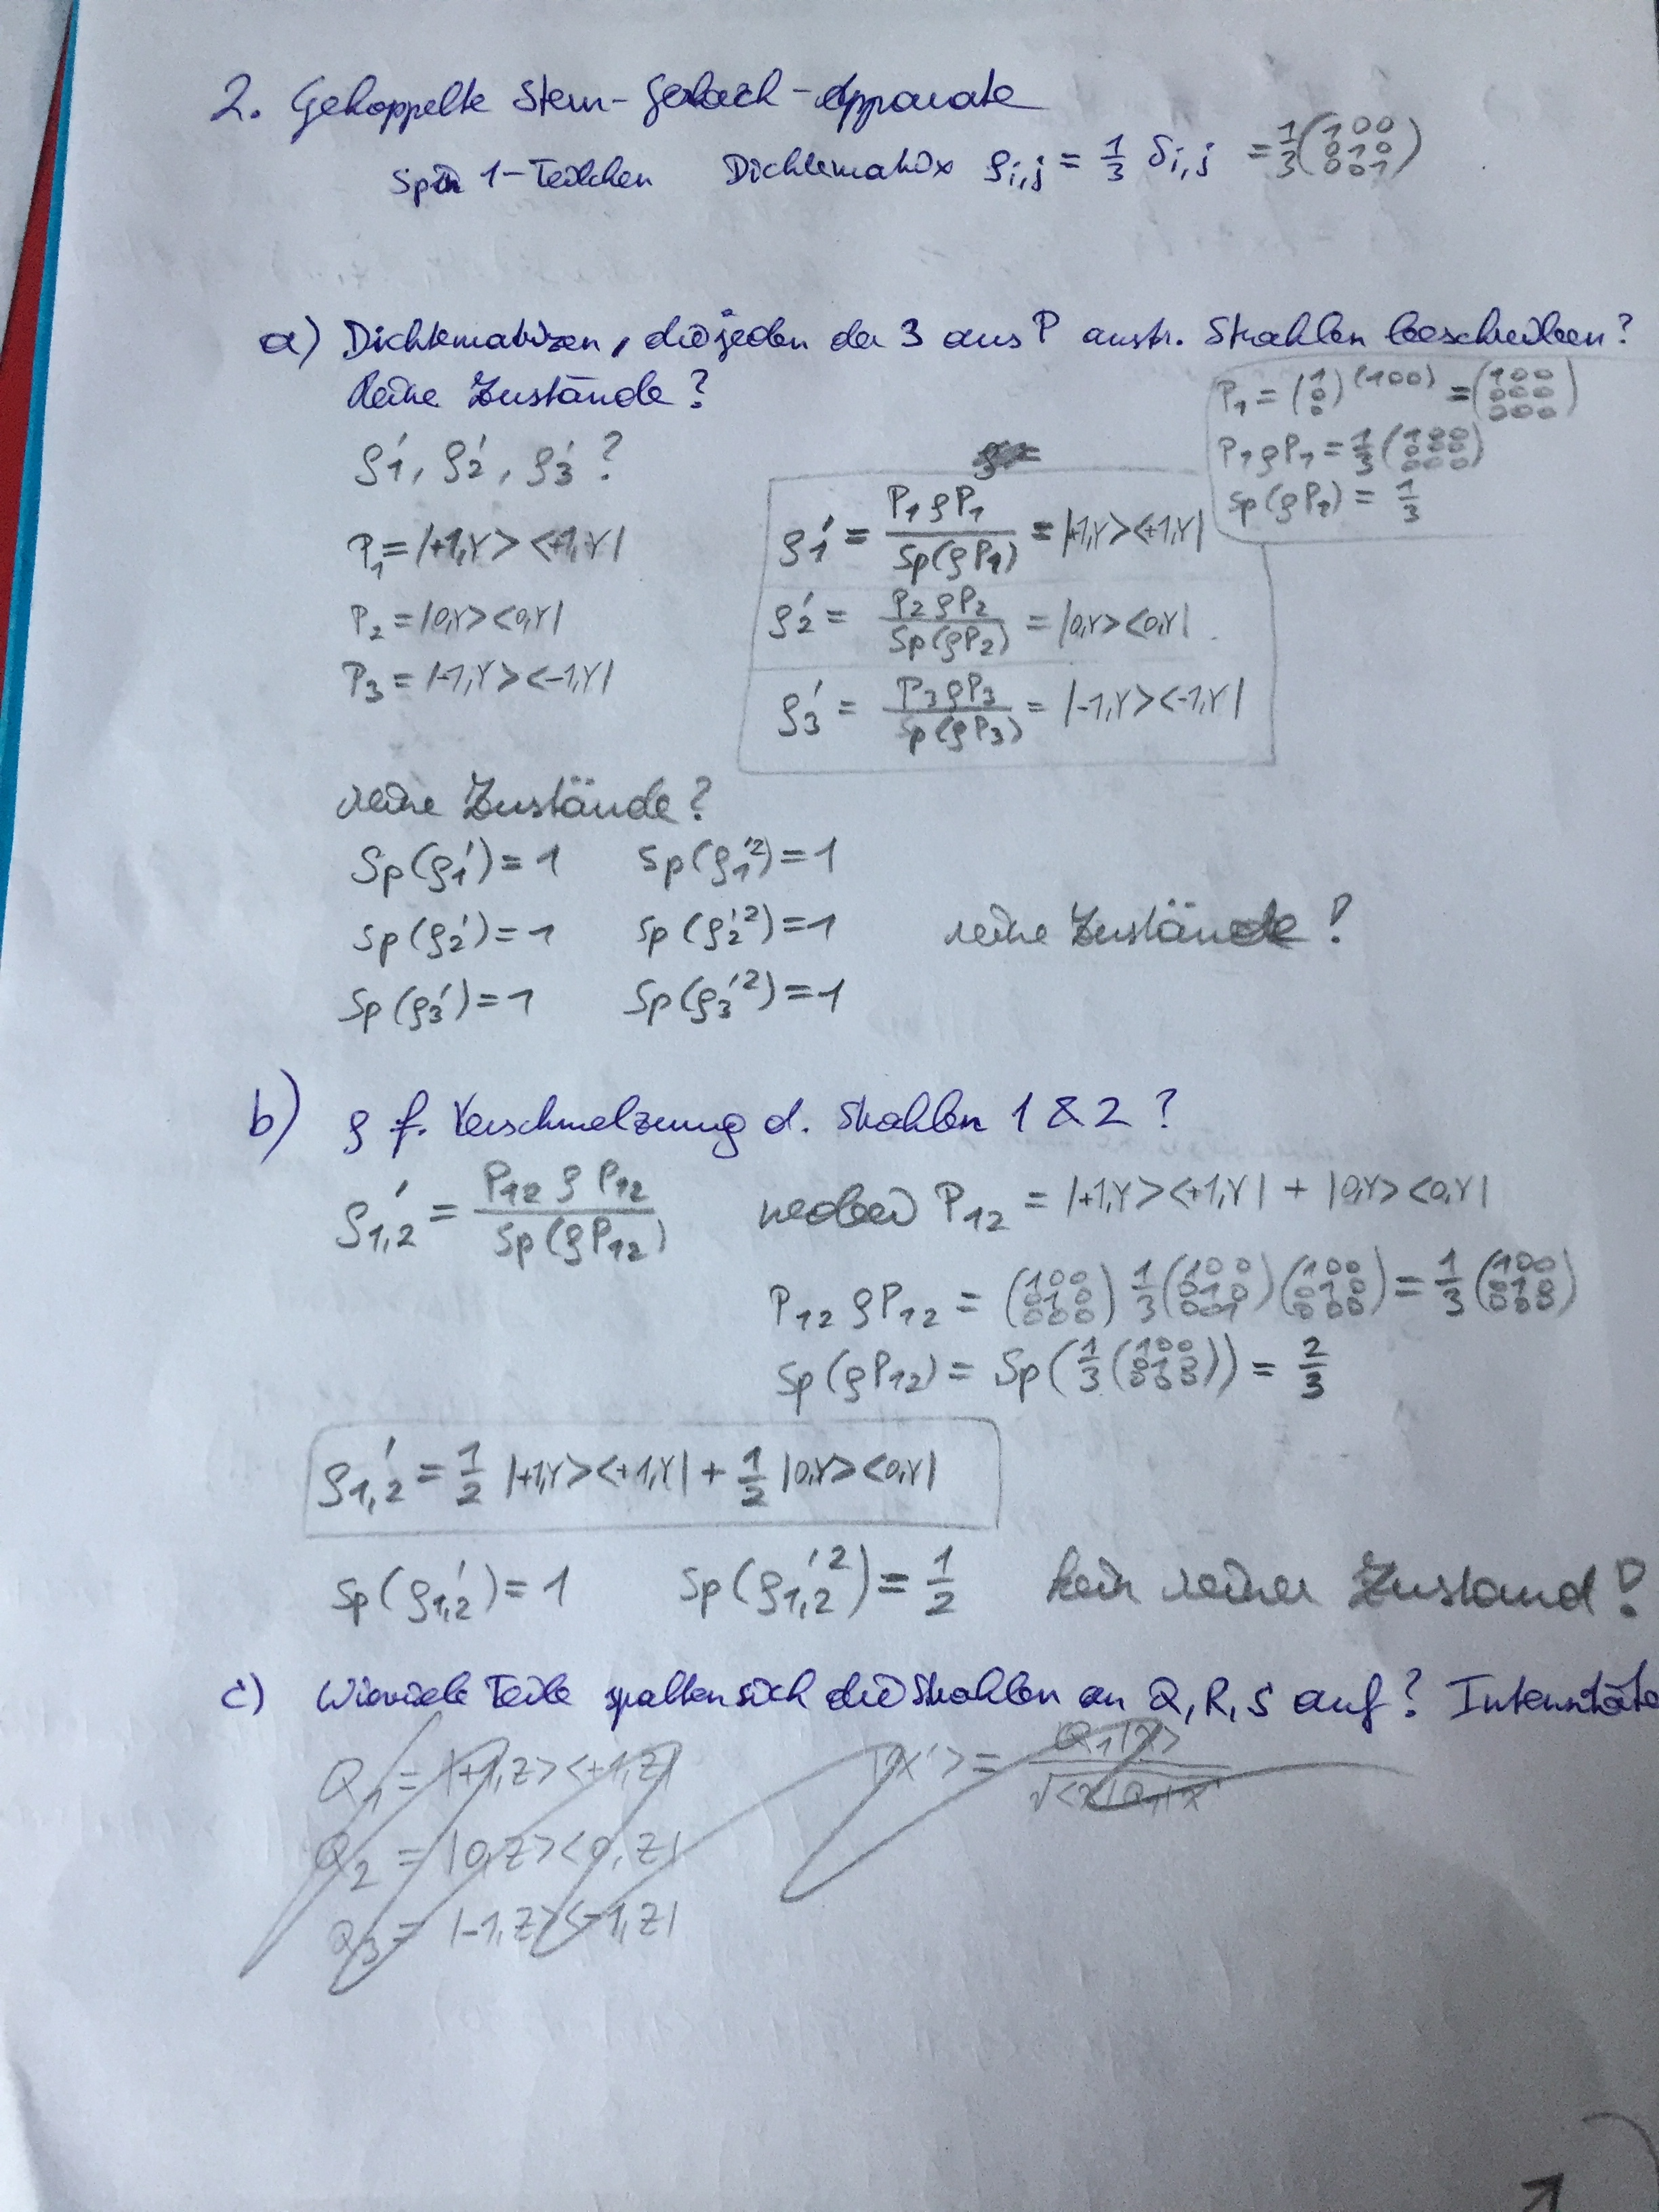 2. Gekoppelte Stern-Gerlach-Apparate
Spin 1-Teilchen Dichtematrix ρi,j = 1/3 δi,j = 1/3 (1 0 0 / 0 1 0 / 0 0 1)
a) Dichtematrizen, die jeden der 3 aus P austr. Strahlen beschreiben?
Reine Zustände?
P1 = (1 / 0 / 0) (1 0 0) = (1 0 0 / 0 0 0 / 0 0 0)
P1 ρ P1 = 1/3 (1 0 0 / 0 0 0 / 0 0 0)
Sp(ρP1) = 1/3
ρ1', ρ2', ρ3' ?
P1 = |+1,Y> <+1,Y|
P2 = |0,Y> <0,Y|
P3 = |-1,Y> <-1,Y|
ρ1' = P1 ρ P1 / Sp(ρP1) = |+1,Y> <+1,Y|
ρ2' = P2 ρ P2 / Sp(ρP2) = |0,Y> <0,Y|
ρ3' = P3 ρ P3 / Sp(ρP3) = |-1,Y> <-1,Y|
reine Zustände?
Sp(ρ1') = 1 Sp(ρ1'²) = 1
Sp(ρ2') = 1 Sp(ρ2'²) = 1 reine Zustände!
Sp(ρ3') = 1 Sp(ρ3'²) = 1
b) ρ f. Verschmelzung d. Strahlen 1 & 2 ?
ρ1,2' = P12 ρ P12 / Sp(ρP12) wobei P12 = |+1,Y> <+1,Y| + |0,Y> <0,Y|
P12 ρ P12 = (1 0 0 / 0 1 0 / 0 0 0) 1/3 (1 0 0 / 0 1 0 / 0 0 1) (1 0 0 / 0 1 0 / 0 0 0) = 1/3 (1 0 0 / 0 1 0 / 0 0 0)
Sp(ρP12) = Sp(1/3 (1 0 0 / 0 1 0 / 0 0 0)) = 2/3
ρ1,2' = 1/2 |+1,Y> <+1,Y| + 1/2 |0,Y> <0,Y|
Sp(ρ1,2') = 1 Sp(ρ1,2'²) = 1/2 kein reiner Zustand!
c) Wieviele Teile spalten sich die Strahlen an Q, R, S auf? Intensitäte
Q1 = |+1,Z> <+1,Z| |χ'> = Q1|χ> / √<χ|Q1|χ
Q2 = |0,Z> <0,Z|
Q3 = |-1,Z> <-1,Z|
1